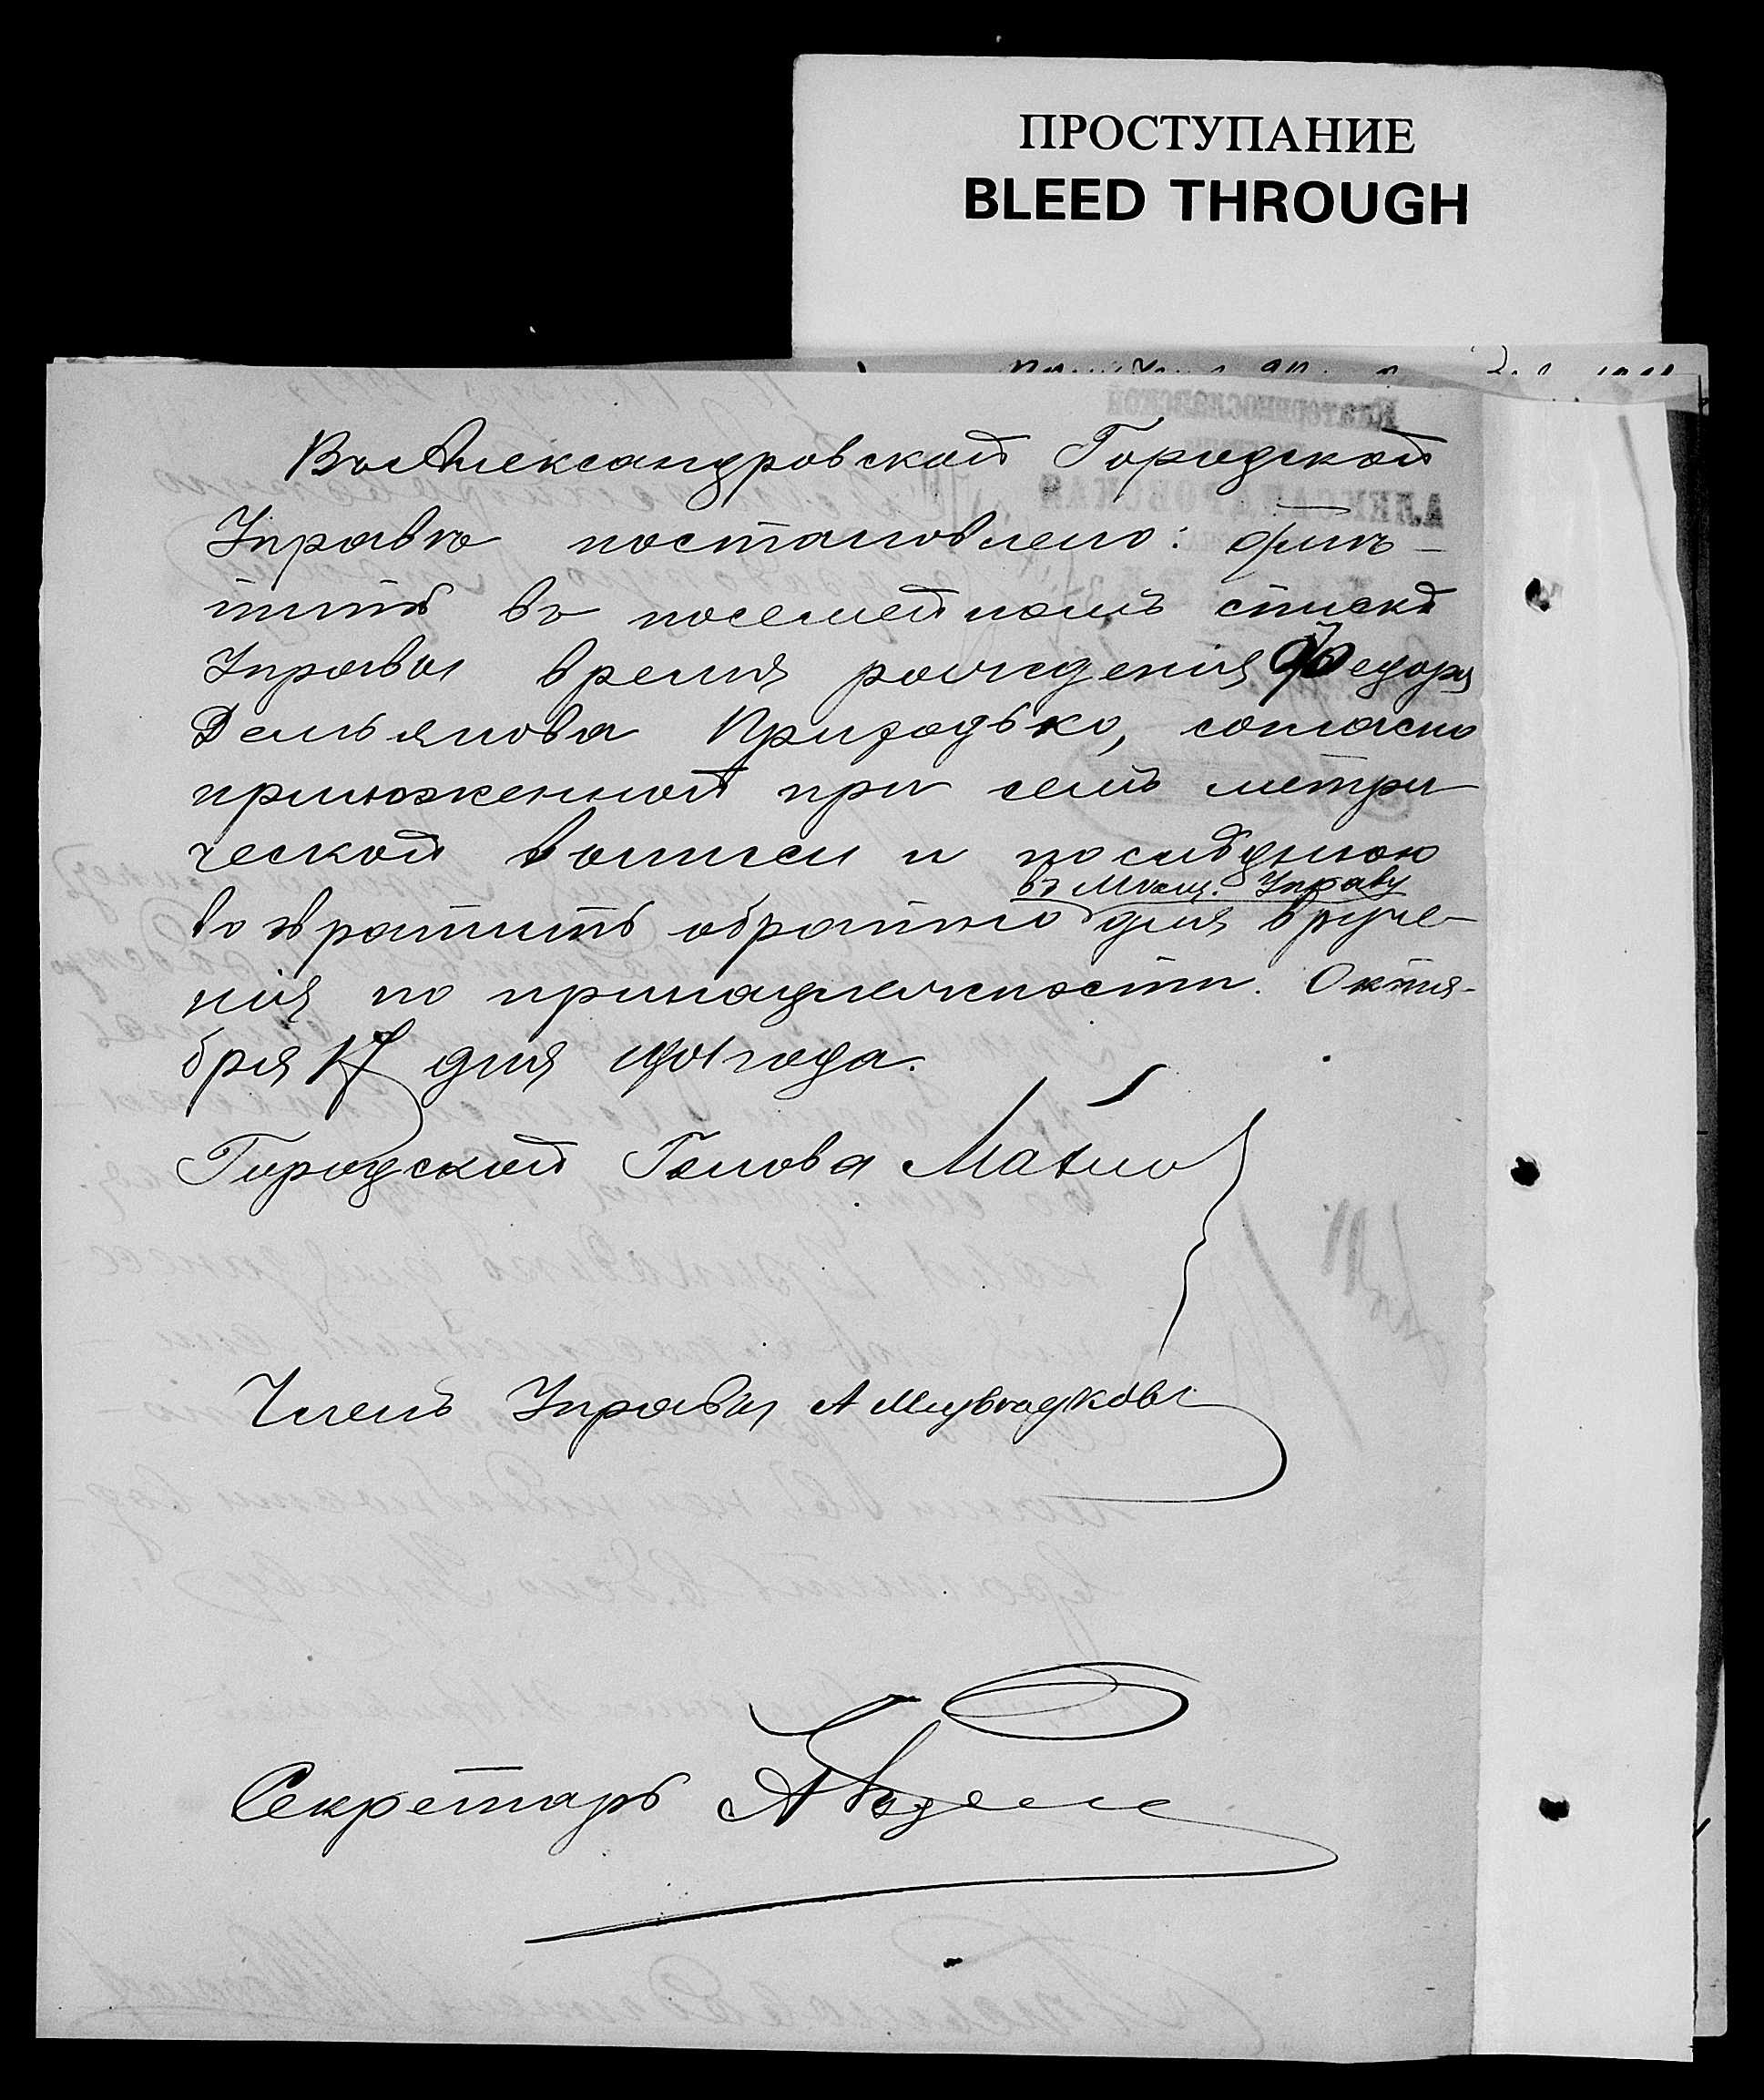 ПРОСТУПАНИЕ
BLEED THROUGH
Въ Александровской Городской
Управѣ постановлено: отмѣ-
тить въ посемейномъ спискѣ
Управы время рожденія Федора
Демьянова Приходько, согласно
приложенной при семъ метри
ческой выписи и послѣднюю
въ Мѣщ. Управу
возвратить обратно для вруче-
нія по принадлежности. Октя-
бря 17 дня 1901 года.
Городской Голова
Членъ Управы А
Секретарь